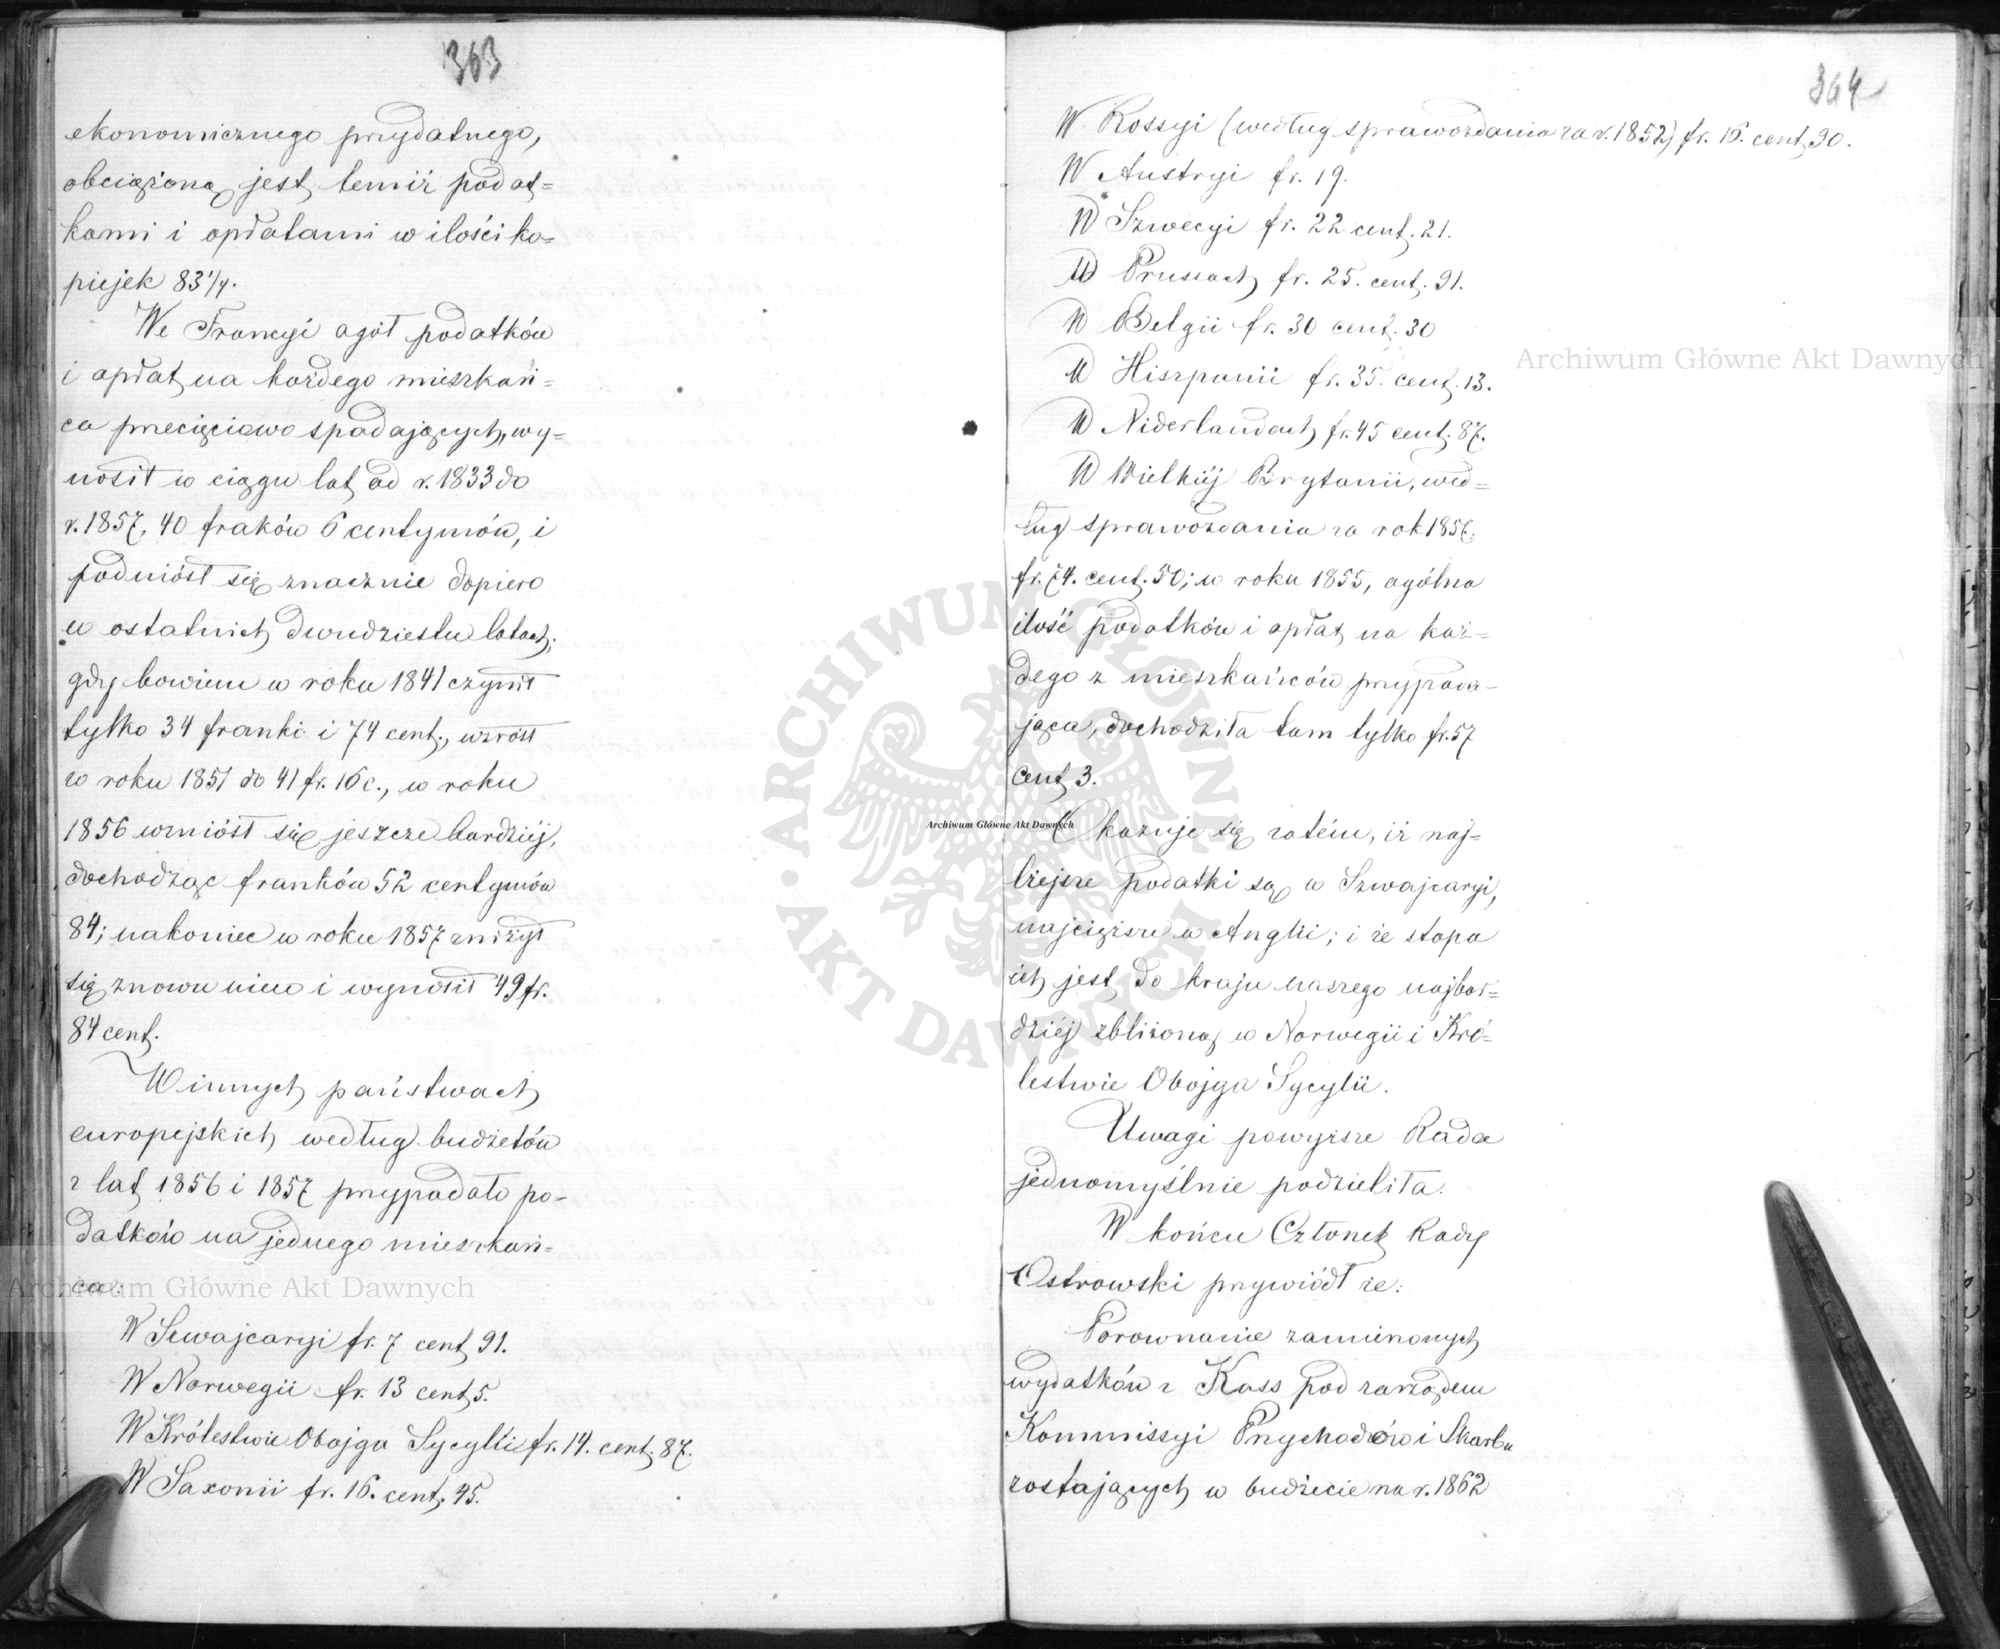 363
ekonomicznego przydatnego,
obciążoną jest temiż podat=
kami i opłatami w ilości ko=
piejek 83 1/4.
We Francyi ogół podatków
i opłat na każdego mieszkań=
ca przecięciowo spadających, wy=
nosił w ciągu lat od r. 1833 do
r. 1857, 40 fraków 6 centymów, i
podniósł się znacznie dopiero
w ostatnich dwudziestu latach;
gdy bowiem w roku 1841 czynił
tylko 34 franki i 74 cent., wzrósł
w roku 1851 do 41 fr. 16 c., w roku
1856 wzniósł się jeszcze bardziéj,
dochodząc franków 52 centymów
84; nakoniec w roku 1857 zniżył
się znowu nieco i wynosił 49 fr.
84 cent.
W innych państwach
europejskich według budżetów
z lat 1856 i 1857 przypadało po=
datków na jednego mieszkań=
ca:
W Szwajcaryi fr. 7 cent 91.
W Norwegii fr. 13 cent 5.
W Królestwie Obojga Sycylii fr. 14. cent. 87.
W Saxonii fr. 16. cent. 45.
364
W Rossyi (według sprawozdania za r. 1852) fr. 16. cent 90.
W Austryi fr. 19.
W Szwecyi fr. 22 cent. 21.
W Prussach fr. 25. cent. 91.
W Belgii fr. 30 cent. 30
W Hiszpanii fr. 35. cent. 13.
W Niderlandach fr. 45 cent. 87.
W Wielkiéj Brytanii, wed=
ług sprawozdania za rok 1856.
fr. 74. cent. 50; w roku 1855, ogólna
ilość podatków i opłat na każ=
dego z mieszkańców przypada=
jąca, dochodziła tam tylko fr. 57
cent 3.
Okazuje się zatém, iż naj=
lżejsze podatki są w Szwajcaryi,
najcięższe w Anglii; i że stopa
ich jest do kraju naszego najbar=
dziéj zbliżoną w Norwegii i Kró=
lestwie Obojga Sycylii.
Uwagi powyższe Rada
jednomyślnie podzieliła.
W końcu Członek Rady
Ostrowski przywiódł że:
Porownanie zamienonych
wydatków z Kass pod zarządem
Kommissyi Przychodów i Skarbu
zostających w budżecie na r. 1862
Archiwum Główne Akt Dawnych
Archiwum Główne Akt Dawnych
Archiwum Główne Akt Dawnych
ARCHIWUM GŁÓWNE
AKT DAWNYCH